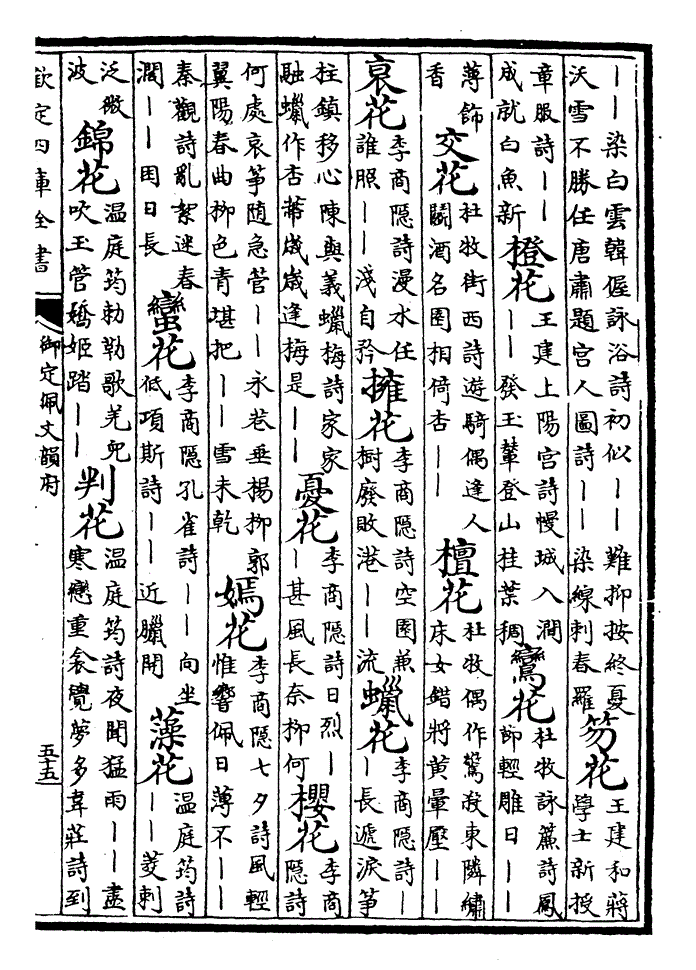 ――染白雲韓偓詠浴詩初似――難抑按終憂
沃雪不勝任唐肅題宫人圖詩――染線刺春羅
笏花
王建和蔣
學士新授
章服詩――
成就白魚新
橙花
王建上陽宫詩幔城入澗
――發玉輦登山桂葉稠
鸞花
杜牧詠簾詩鳳
節輕雕日――
薄飾
香
交花
杜牧街西詩遊騎偶逢人
鬭酒名園相倚杏――
檀花
杜牧偶作驚殺東隣繡
床女錯將黄暈壓――
哀花
李商隱詩漫水任
誰照――淺自矜
擁花
李商隱詩空園兼
樹廢敗港――流
蠟花
李商隱詩―
―長遞淚筝
柱鎮移心陳與義蠟梅詩家家
融蠟作杏蔕嵗嵗逢梅是――
憂花
李商隱詩日烈―
―甚風長奈柳何
櫻花
李商
隱詩
何處哀筝随急管――永巷垂楊柳郭
翼陽春曲柳色青堪把――雪未乾
嫣花
李商隱七夕詩風輕
惟響佩日薄不――
秦觀詩亂絮迷春
濶――困日長
蠻花
李商隱孔雀詩――向坐
低項斯詩――近臘開
藻花
温庭筠詩
――菱刺
泛微
波
錦花
温庭筠勅勒歌羌兒
吹玉管嬌姬踏――
判花
温庭筠詩夜聞猛雨――盡
寒戀重衾覺夢多韋莊詩到
欽定四庫全書
御定佩文韻府
五十五